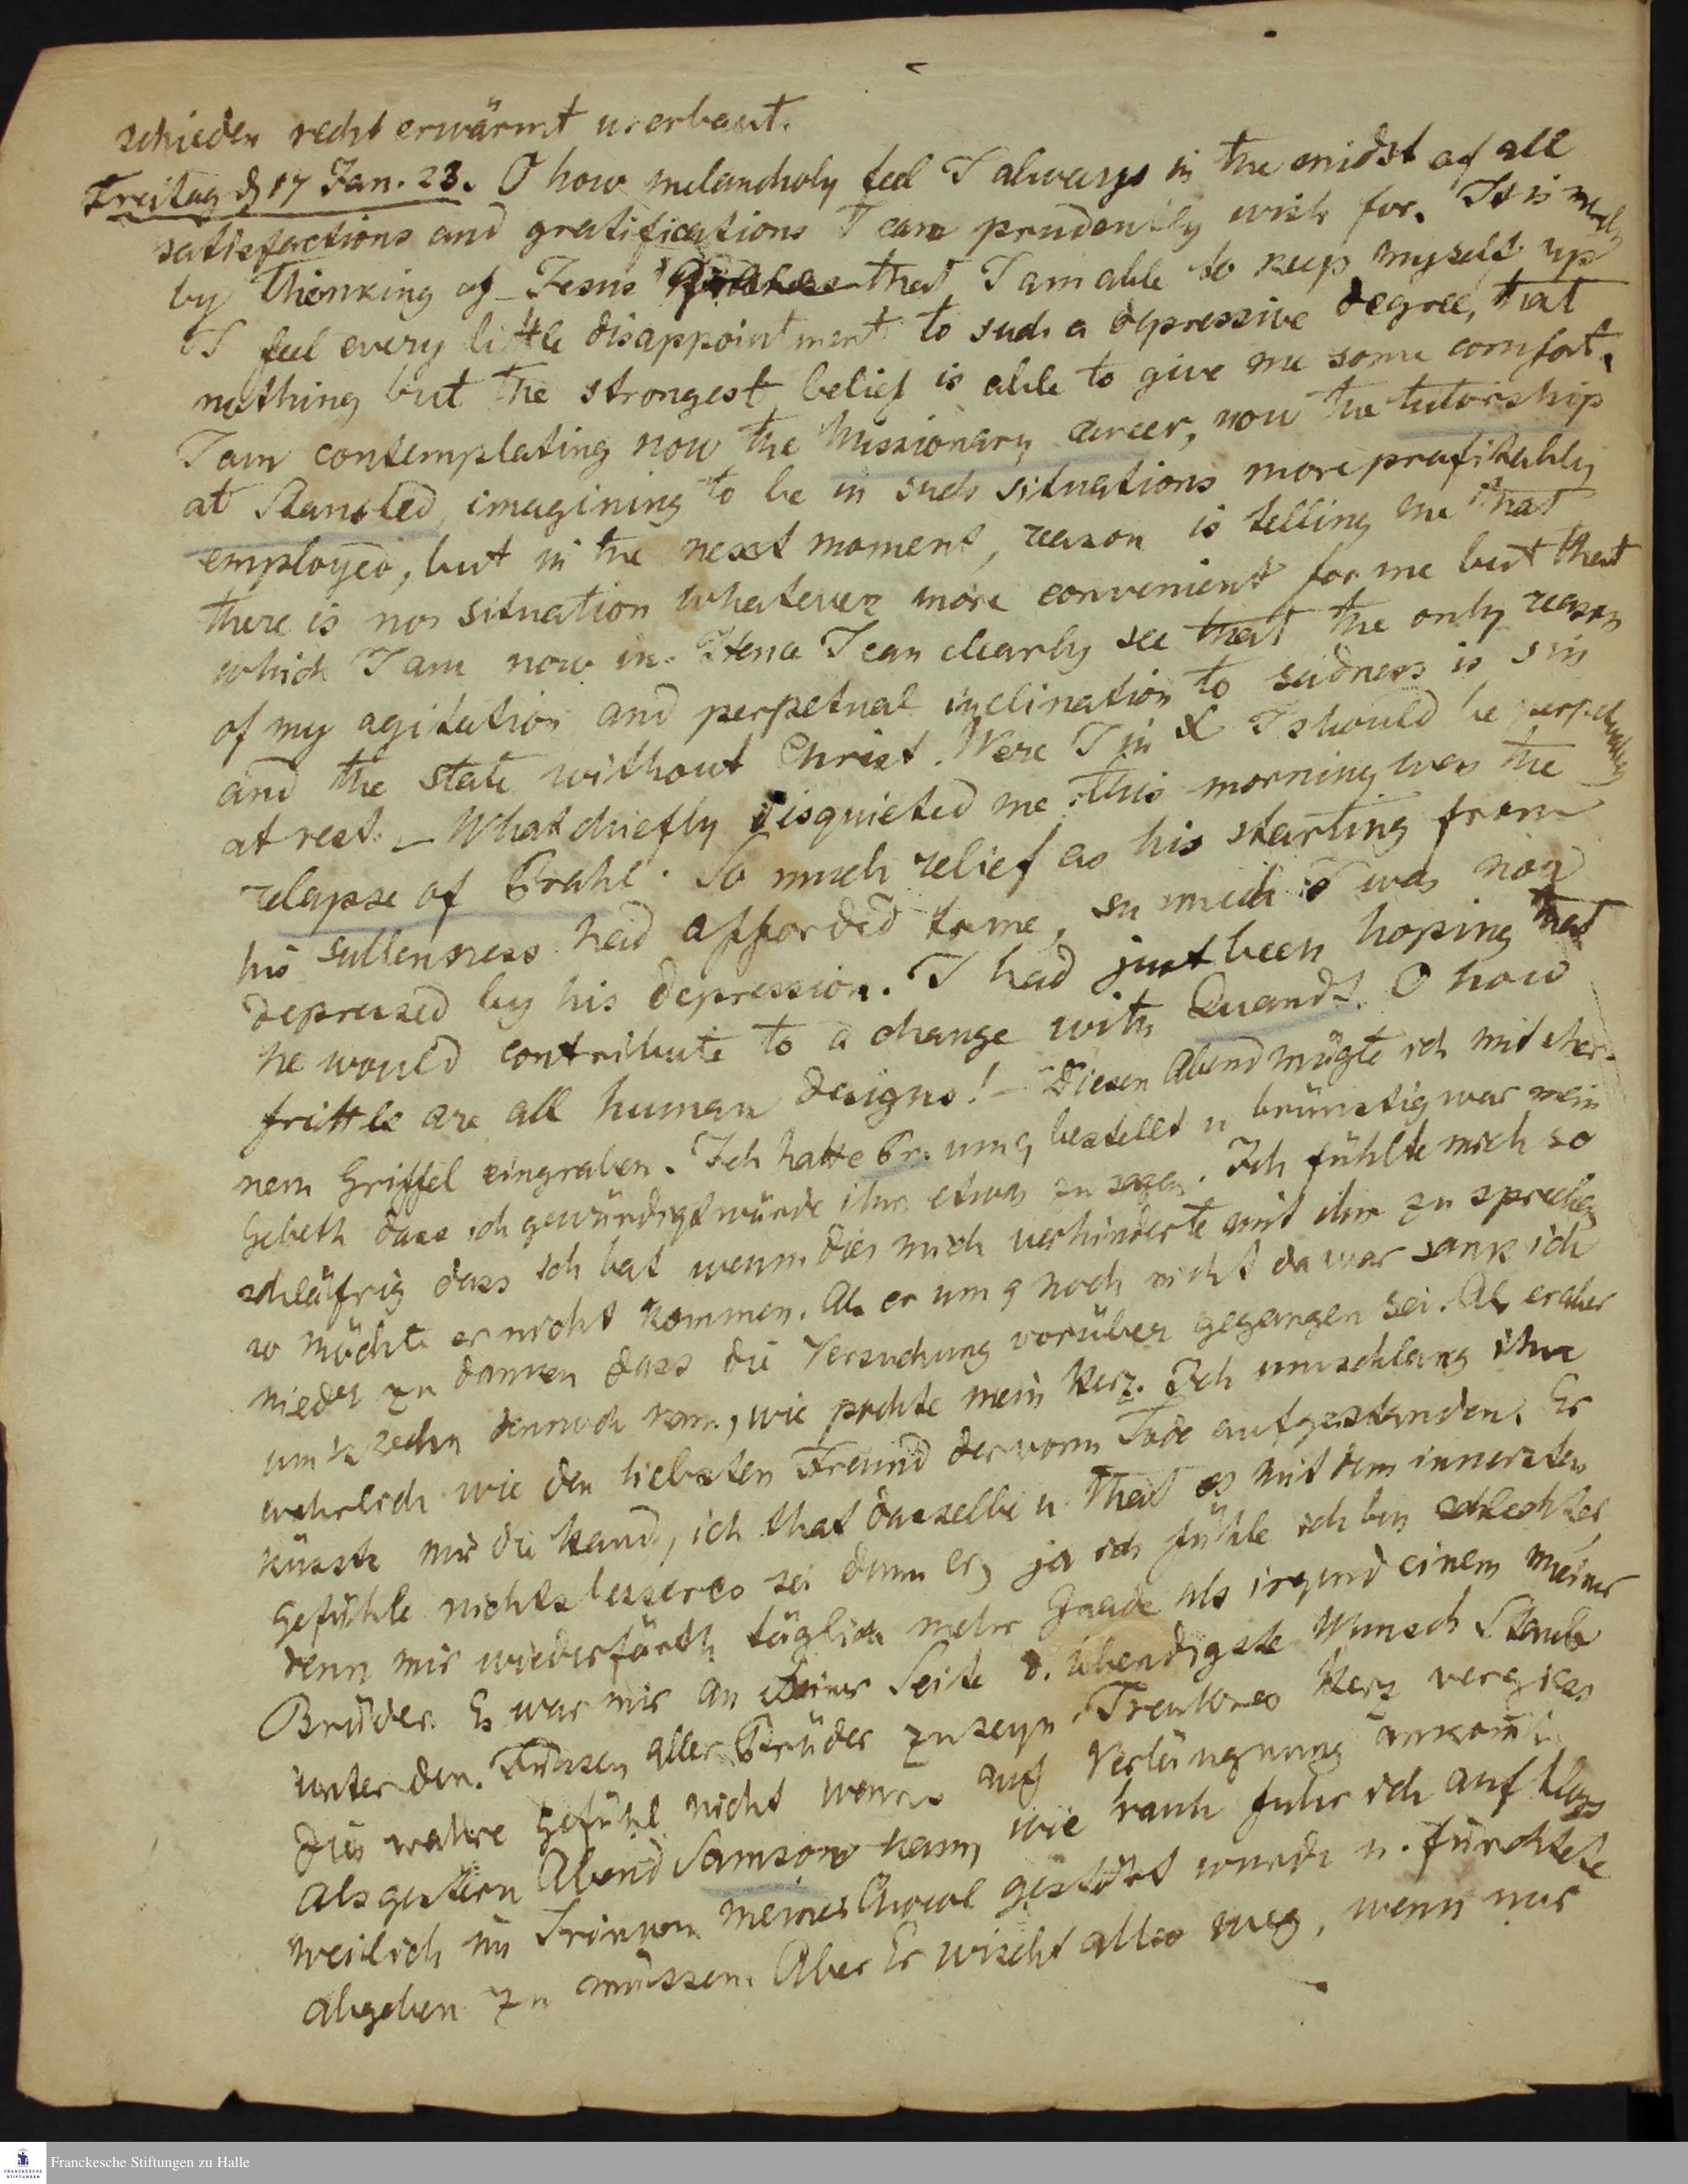 schieden recht erwärmt u. erbaut.
Freitag d 17 Jan. 23. O how melancholy feel I always in the midst of all
satisfactions and gratifications I can prudently wish for. It is merely
by thinking of Jesus that I am able to keep myself up
I feel every little disappointment to such a depressive degree, that
nothing but the strongest belief is able to give me some comfort.
I am contemplating now the Missionary career, now the tutorship
at Stansted, imagining to be in such situations more profitably
employed, but in the next moment, reason is telling me that
there is no situation whatever more convenient for me but that
which I am now in. Hence I can clearly see that the only reason
of my agitation and perpetual inclination to sadness is sin
and the state without Christ. Were I in X I should be perpetually
at rest. – What chiefly disquieted me this morning was the
relapse of Brahl. So much relief as his starting from
his sullenness had afforded to me, so much I was now
depressed by his depression. I had just been hoping that
he would contribute to a change with Quandt. O how
frittle are all human designs! – Diesen Abend mögte ich mit eher-
nem Griffel eingraben. Ich hatte Br. um 9 bestellt u brünstig war mein
Gebeth dass ich gewürdigt würde ihm etwas zu sagen. Ich fühlte mich so
schläfrig dass ich bat wenn dies mich verhinderte mit ihm zu sprechen
so möchte er nicht kommen. Als er um 9 noch nicht da war sank ich
nieder zu danken dass die Versuchung vorüber gegangen sei. Als er aber
um ½ zehn dennoch kam, wie pochte mein Herz. Ich umschlang ihn
wahrlich wie den liebsten Freund der vom Tode aufgestanden. Er
küsste mir die Hand, ich that dasselbe u that es mit dem innersten
Gefühle nichts besseres sei denn er, ja ich fühle ich bin schlechter,
denn mir wiederfärth täglich mehr Gnade als irgend einem meiner
Brüder. Es war mir an seiner Seite d. lebendigste Wunsch Staub
unter den Füssen aller Brüder zu seyn. Treuloses Herz vergiss
dies wahre Gefühl nicht wenns auf Verläugnung ankomt.
Als gestern Abend Samson kam, wie rauh fuhr ich auf blos
weil ich im Trinken meines gestört wurde u. fürchtete
abgeben zu müssen. Aber Er wischt alles weg, wenn nur
Franckesche Stiftungen zu Halle